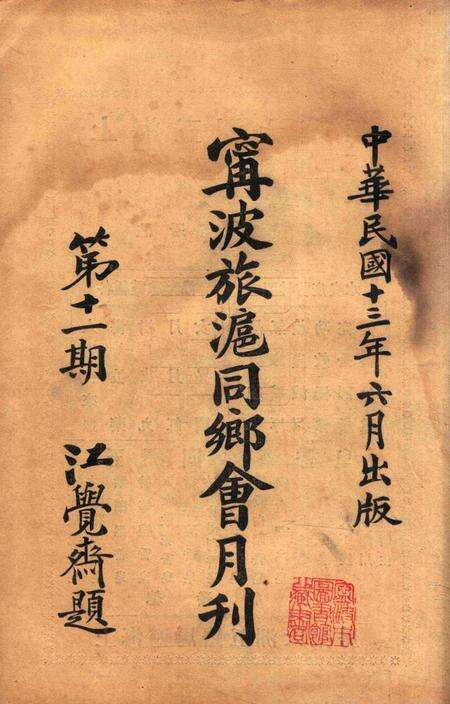 中華民國十三年六月出版
甯波旅滬同鄉會月刊
第十一期 江覺齋題